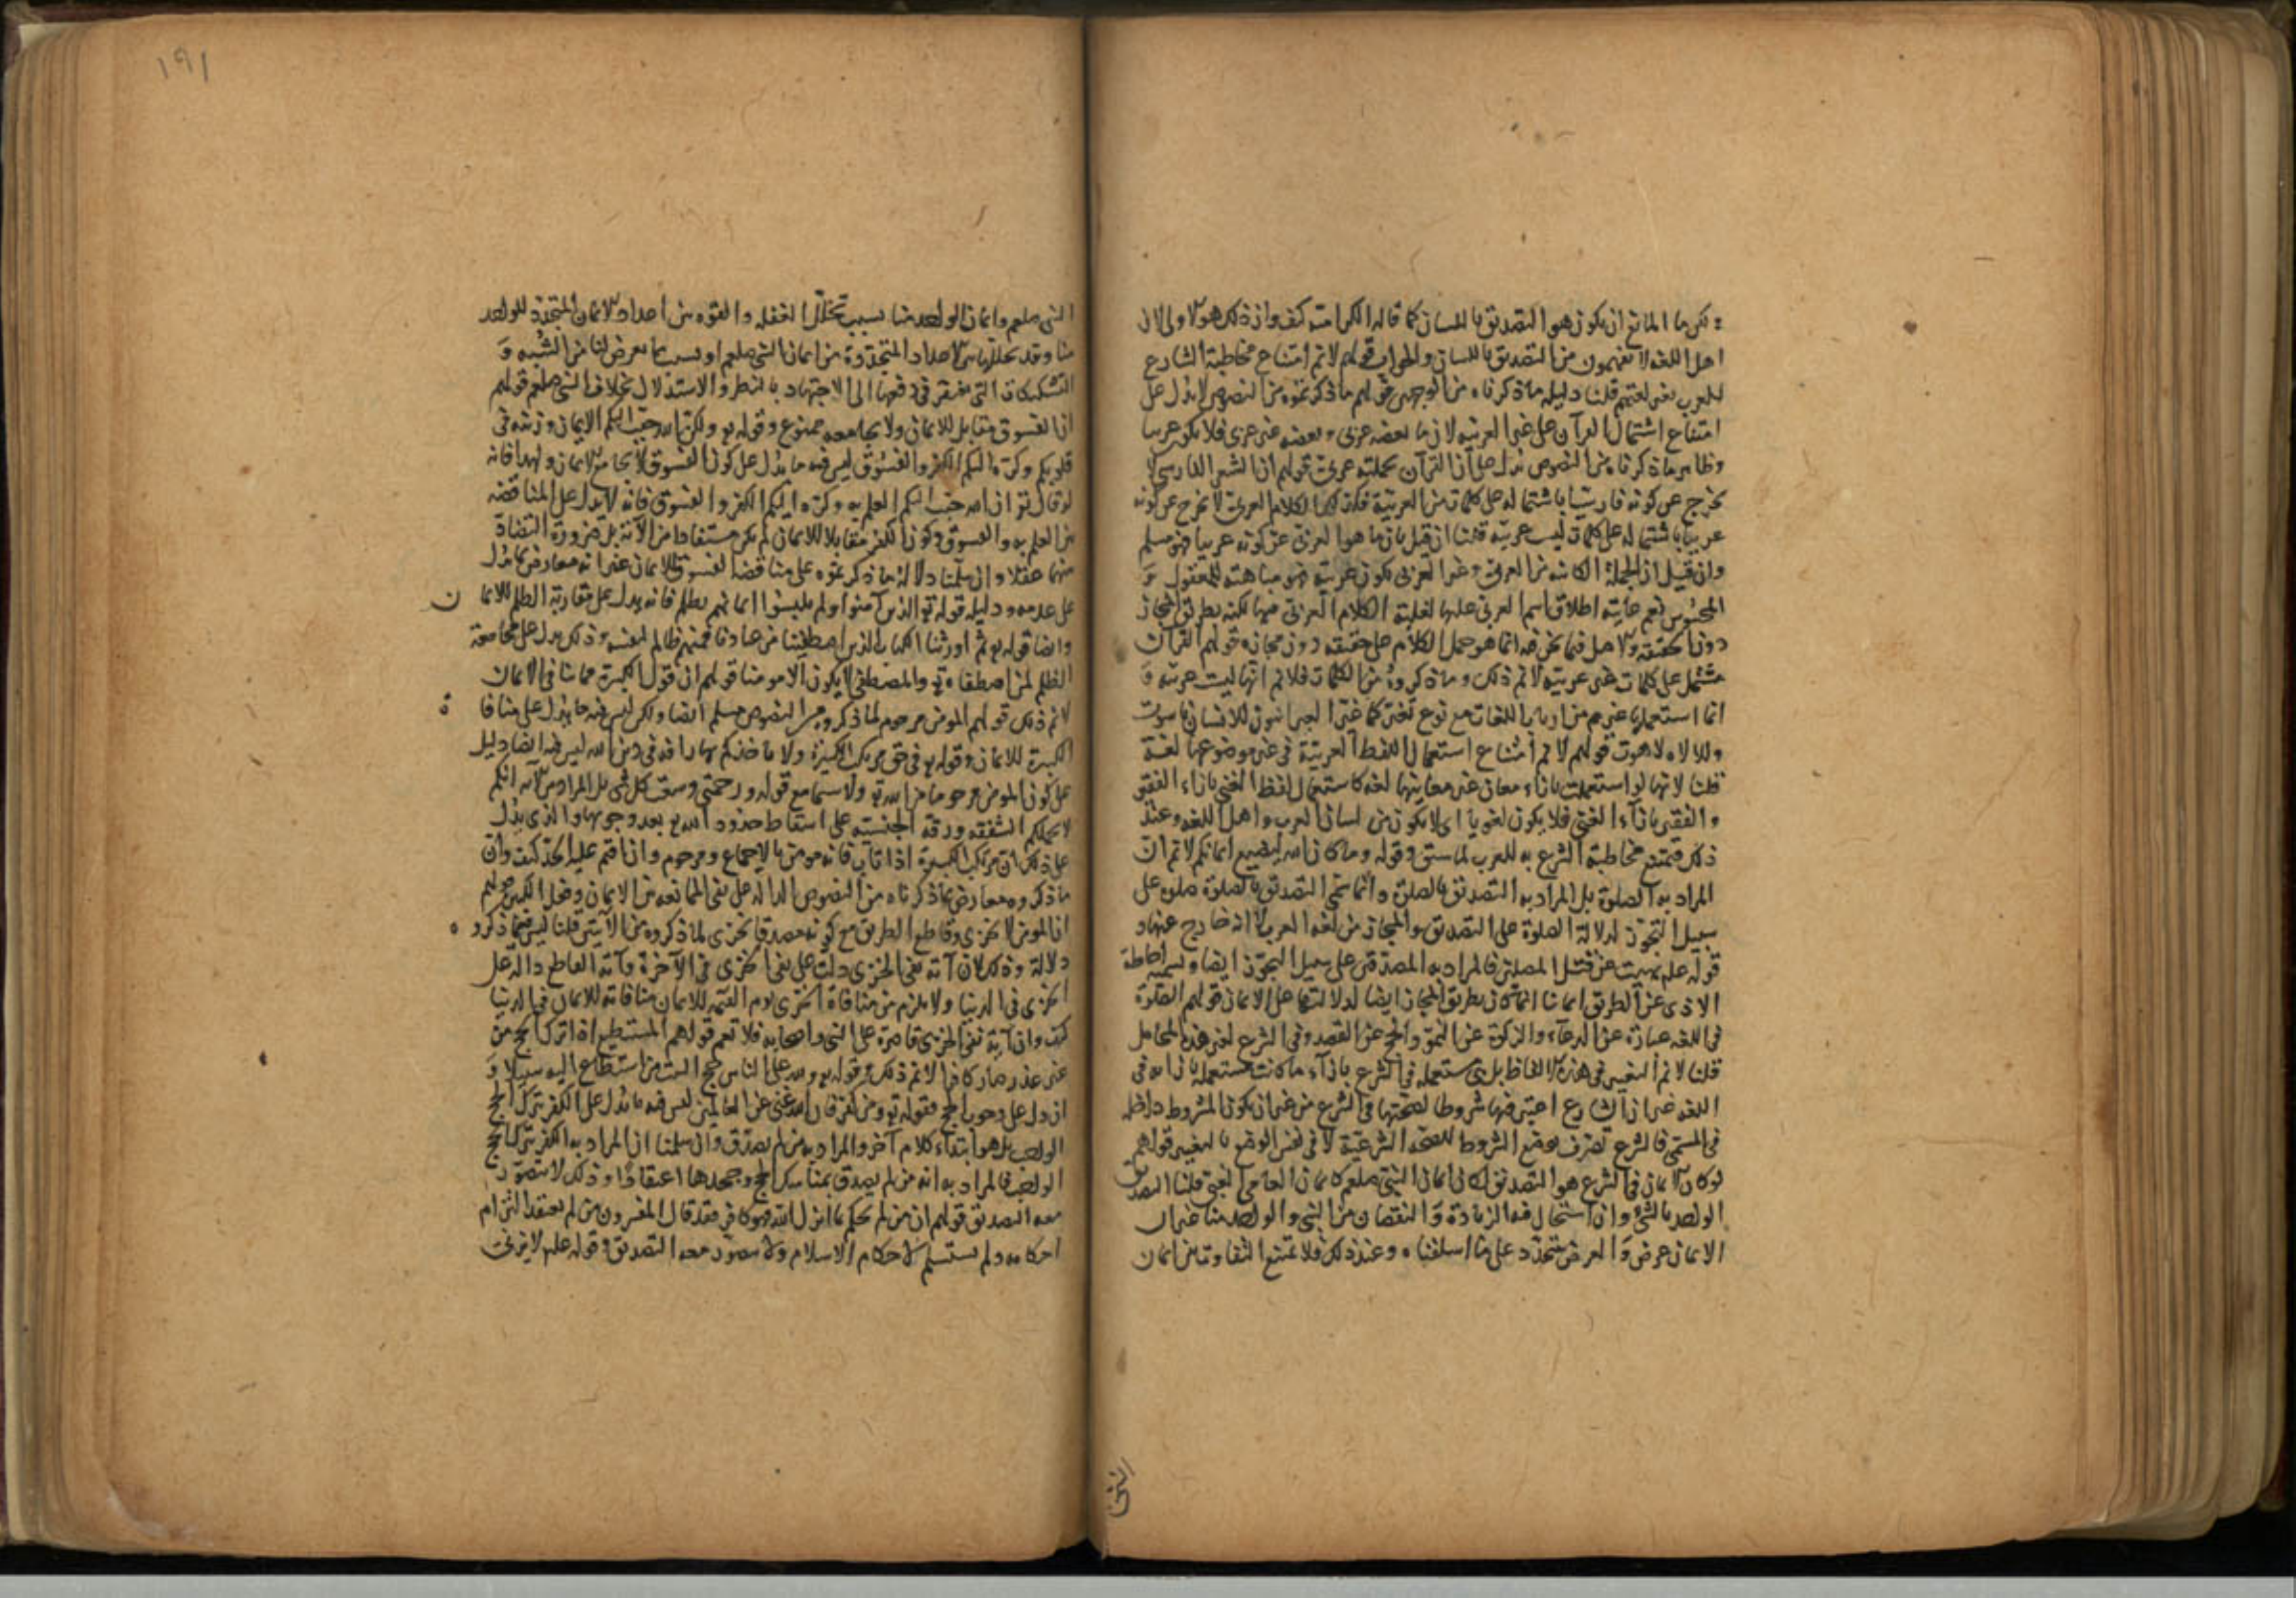 ولكن ما المانع ان يكون هو التصديق باللسان كما قاله الكرامية كيف وان ذلك هو الاولى لان
اهل اللغة لا يفهمون من التصديق باللسان والجواب قولهم لا نم امتناع مخاطبة الشارع
للعرب بغير لغتهم قلنا دليله ما ذكرناه من الوجهين قولهم ما ذكرتموه من النصوص لا يدل على
امتناع اشتمال القرآن على غير العربية لان ما بعضه عربى وبعضه غير عربى فلا يكون عربيا
وظاهر ما ذكرناه من النصوص يدل على ان القرآن بجملته عربى قولهم ان الشعر الفارسى لا
يخرج عن كونه فارسيا باشتماله على كلمات من العربية فكذلك الكلام العربى لا يخرج عن كونه
عربيا باشتماله على كلمات ليست عربية قلنا ان قيل بان ما هو العربى عن كونه عربيا فهو مسلم
وان قيل ان الجملة الكائنة من العربى وغير العربى يكون عربية فهو مباهتة للمعقول و
المحسوس نعم غايته اطلاق اسم العربى عليها لغلبة الكلام العربى فيها لكنه بطريق المجاز
دون الحقيقة والاصل فيما نحن فيه انما هو حمل الكلام على حقيقته دون مجازه قولهم القرآن
مشتمل على كلمات غير عربية لا نم ذلك وما ذكروه من الكلمات فلا نم انها ليست عربية و
انما استعملها غيرهم من ارباب اللغات مع نوع تغيير كما غير العبرانيون للانسان ناسوت
وللاله لاهوت قولهم لا نم امتناع استعمال اللفظ العربية فى غير موضوعها لغة
قلنا لانها لو استعملت بازاء معان غير معانيها لغة كاستعمال لفظ الغنى بازاء الفقير
والفقير بازاء الغنى فلا يكون لغويا اى لا يكون من لسان العرب واهل اللغة وعند
ذلك فيمتنع مخاطبة الشرع به للعرب لما سبق وقوله وما كان الله ليضيع ايمانكم لا نم ان
المراد به الصلوة بل المراد به التصديق بالصلوة وانما سمى التصديق بالصلوة صلوة على
سبيل التجوز لدلالة الصلوة على التصديق والمجاز من لغة العرب لا انه خارج عنها و
قوله علم نهيت عن قتل المصلين فالمراد به المصدقين على سبيل التجوز ايضا وتسمية اماطة
الاذى عن الطريق ايمانا انما كان بطريق المجاز ايضا لدلالتها على الايمان قولهم الصلوة
فى اللغة عبارة عن الدعاء والزكوة عن النمو والحج عن القصد وفى الشرع لغير هذه المحامل
قلنا لا نم التغيير فى هذه الالفاظ بل هى مستعملة فى الشرع بازاء ما كانت مستعملة بازائه فى
اللغة غير ان الشارع اعتبر فيها شروطا لصحتها فى الشرع من غير ان يكون المشروط داخلة
فى المسمى فالشرع تصرف بوضع الشروط للصحة الشرعية لا فى نفس الوضع بالتغيير قولهم
لو كان الايمان فى الشرع هو التصديق لكان ايمان النبى صلعم كايمان العامى الغبى قلنا التصديق
الواحد بالشئ وان استحال فيه الزيادة والنقصان من النبى والواحد منا غير ان
الايمان عرض والعرض متجدد على ما اسلفناه وعند ذلك فلا يمتنع التفاوت بين ايمان
النبى
١٩١
النبى صلعم وايمان الواحد منا بسبب تخلل الغفلة والفترة بين اعداد الايمان المتجدد للواحد
منا وقلة تخللها بين الاعداد المتجددة من ايمان النبى صلعم او بسبب ما يعرض لنا من الشبه و
التشكيكات التى نفتقر فى دفعها الى الاجتهاد بالنظر والاستدلال بخلاف النبى صلعم قولهم
ان الفسوق مقابل للايمان ولا يجامعه ممنوع وقوله تع ولكن الله حبب اليكم الايمان وزينه فى
قلوبكم وكره اليكم الكفر والفسوق ليس فيه ما يدل على كون الفسوق لا يجامع الايمان ولهذا فانه
لو قال تع ان الله حبب اليكم العلم به وكره اليكم الكفر والفسوق فانه لا يدل على المناقضة
بين العلم به والفسوق وكون الكفر مقابلا للايمان لم يكن مستفادا من الآية بل ضرورة التضاد
بينهما عقلا وان سلمنا دلالة ما ذكرتموه على مناقضة الفسوق للايمان غير انه معارض بما يدل
على عدمه ودليله قوله تع الذين آمنوا ولم يلبسوا ايمانهم بظلم فانه يدل على مقارنة الظلم للايمان
وايضا قوله تع ثم اورثنا الكتاب الذين اصطفينا من عبادنا فمنهم ظالم لنفسه وذلك يدل على مجامعة
الظلم لمن اصطفاه تع والمصطفى لا يكون الا مومنا قولهم ان فعل الكبيرة مما ينافى الايمان
لا نم ذلك قولهم المومن مرحوم لما ذكروه من النصوص مسلم ايضا ولكن ليس فيه ما يدل على منافاة
الكبيرة للايمان وقوله تع فى حق مرتكب الكبيرة ولا تاخذكم بهما رافة فى دين الله ليس فيه ايضا دليل
على كون المومن مرحوما من الله تع ولا سيما مع قوله ورحمتى وسعت كل شى بل المراد من الآية انكم
لا يحملكم الشفقة ورقة الجنسية على اسقاط حدود الله تع بعد وجوبها والذى يدل
على ذلك ان مرتكب الكبيرة اذا تاب فانه مومن بالاجماع ومرحوم وان اقيم عليه الحد كيف وان
ما ذكروه معارض بما ذكرناه من النصوص الدالة على نفى الممانعة بين الايمان وفعل الكبيرة قولهم
ان المومن لا يخزى وقاطع الطريق مع كونه مصدقا يخزى لما ذكروه من الآيتين قلنا ليس فيما ذكروه
دلالة وذلك لان آية نفى الخزى دلت على نفى الخزى فى الآخرة وآية القاطع دالة على
الخزى فى الدنيا ولا يلزم من منافاة الخزى يوم القيمة للايمان منافاته للايمان فى الدنيا
كيف وان آية نفى الخزى قاصرة على النبى واصحابه فلا تعم قولهم المستطيع اذا ترك الحج من
غير عذر صار كافرا لا نم ذلك وقوله تع ولله على الناس حج البيت من استطاع اليه سبيلا و
ان دل على وجوب الحج فقوله تع ومن كفر فان الله غنى عن العالمين ليس فيه ما يدل على الكفر بترك الحج
الواجب بل هو ابتداء كلام آخر والمراد به من لم يصدق وان سلمنا ان المراد به الكفر بترك الحج
الواجب فالمراد به انه من لم يصدق بمناسك الحج وجحدها اعتقادا وذلك لا يتصور
معه التصديق قولهم ان من لم يحكم بما انزل الله فهو كافر فقد قال المفسرون من لم يعتقد التزام
احكامه ولم يستسلم لاحكام الاسلام ولا يتصور معه التصديق وقوله علم لا يزنى